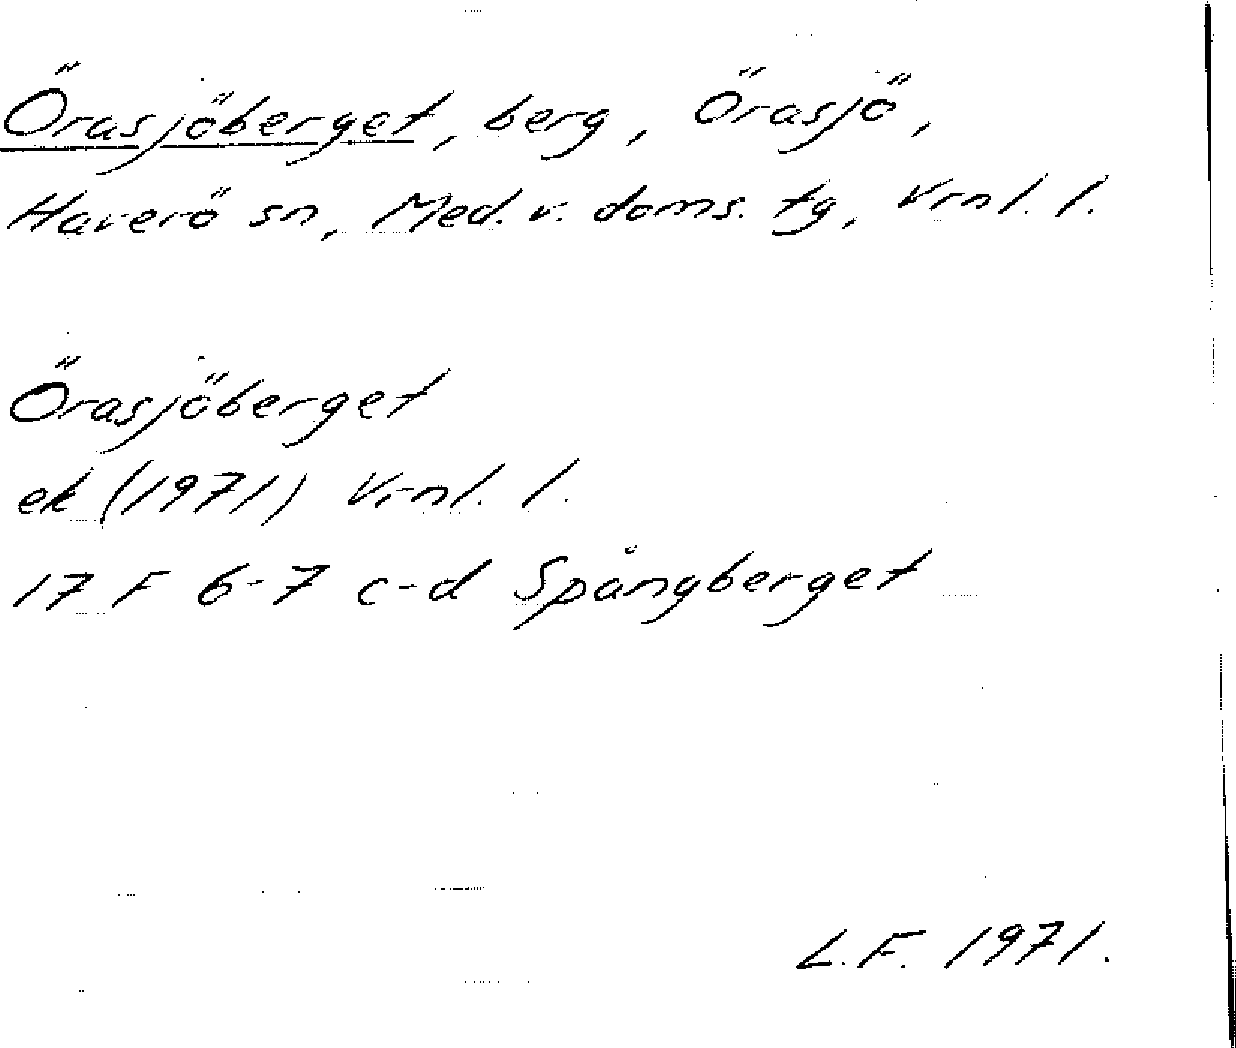 Örasjöberget, berg, Örasjö,
Haverö sn, Med. v. doms. tg, Vrnl. l.
Örasjöberget
ek (1971) Vrnl. l.
17 F 6-7 c-d Spångberget
L.F. 1971.